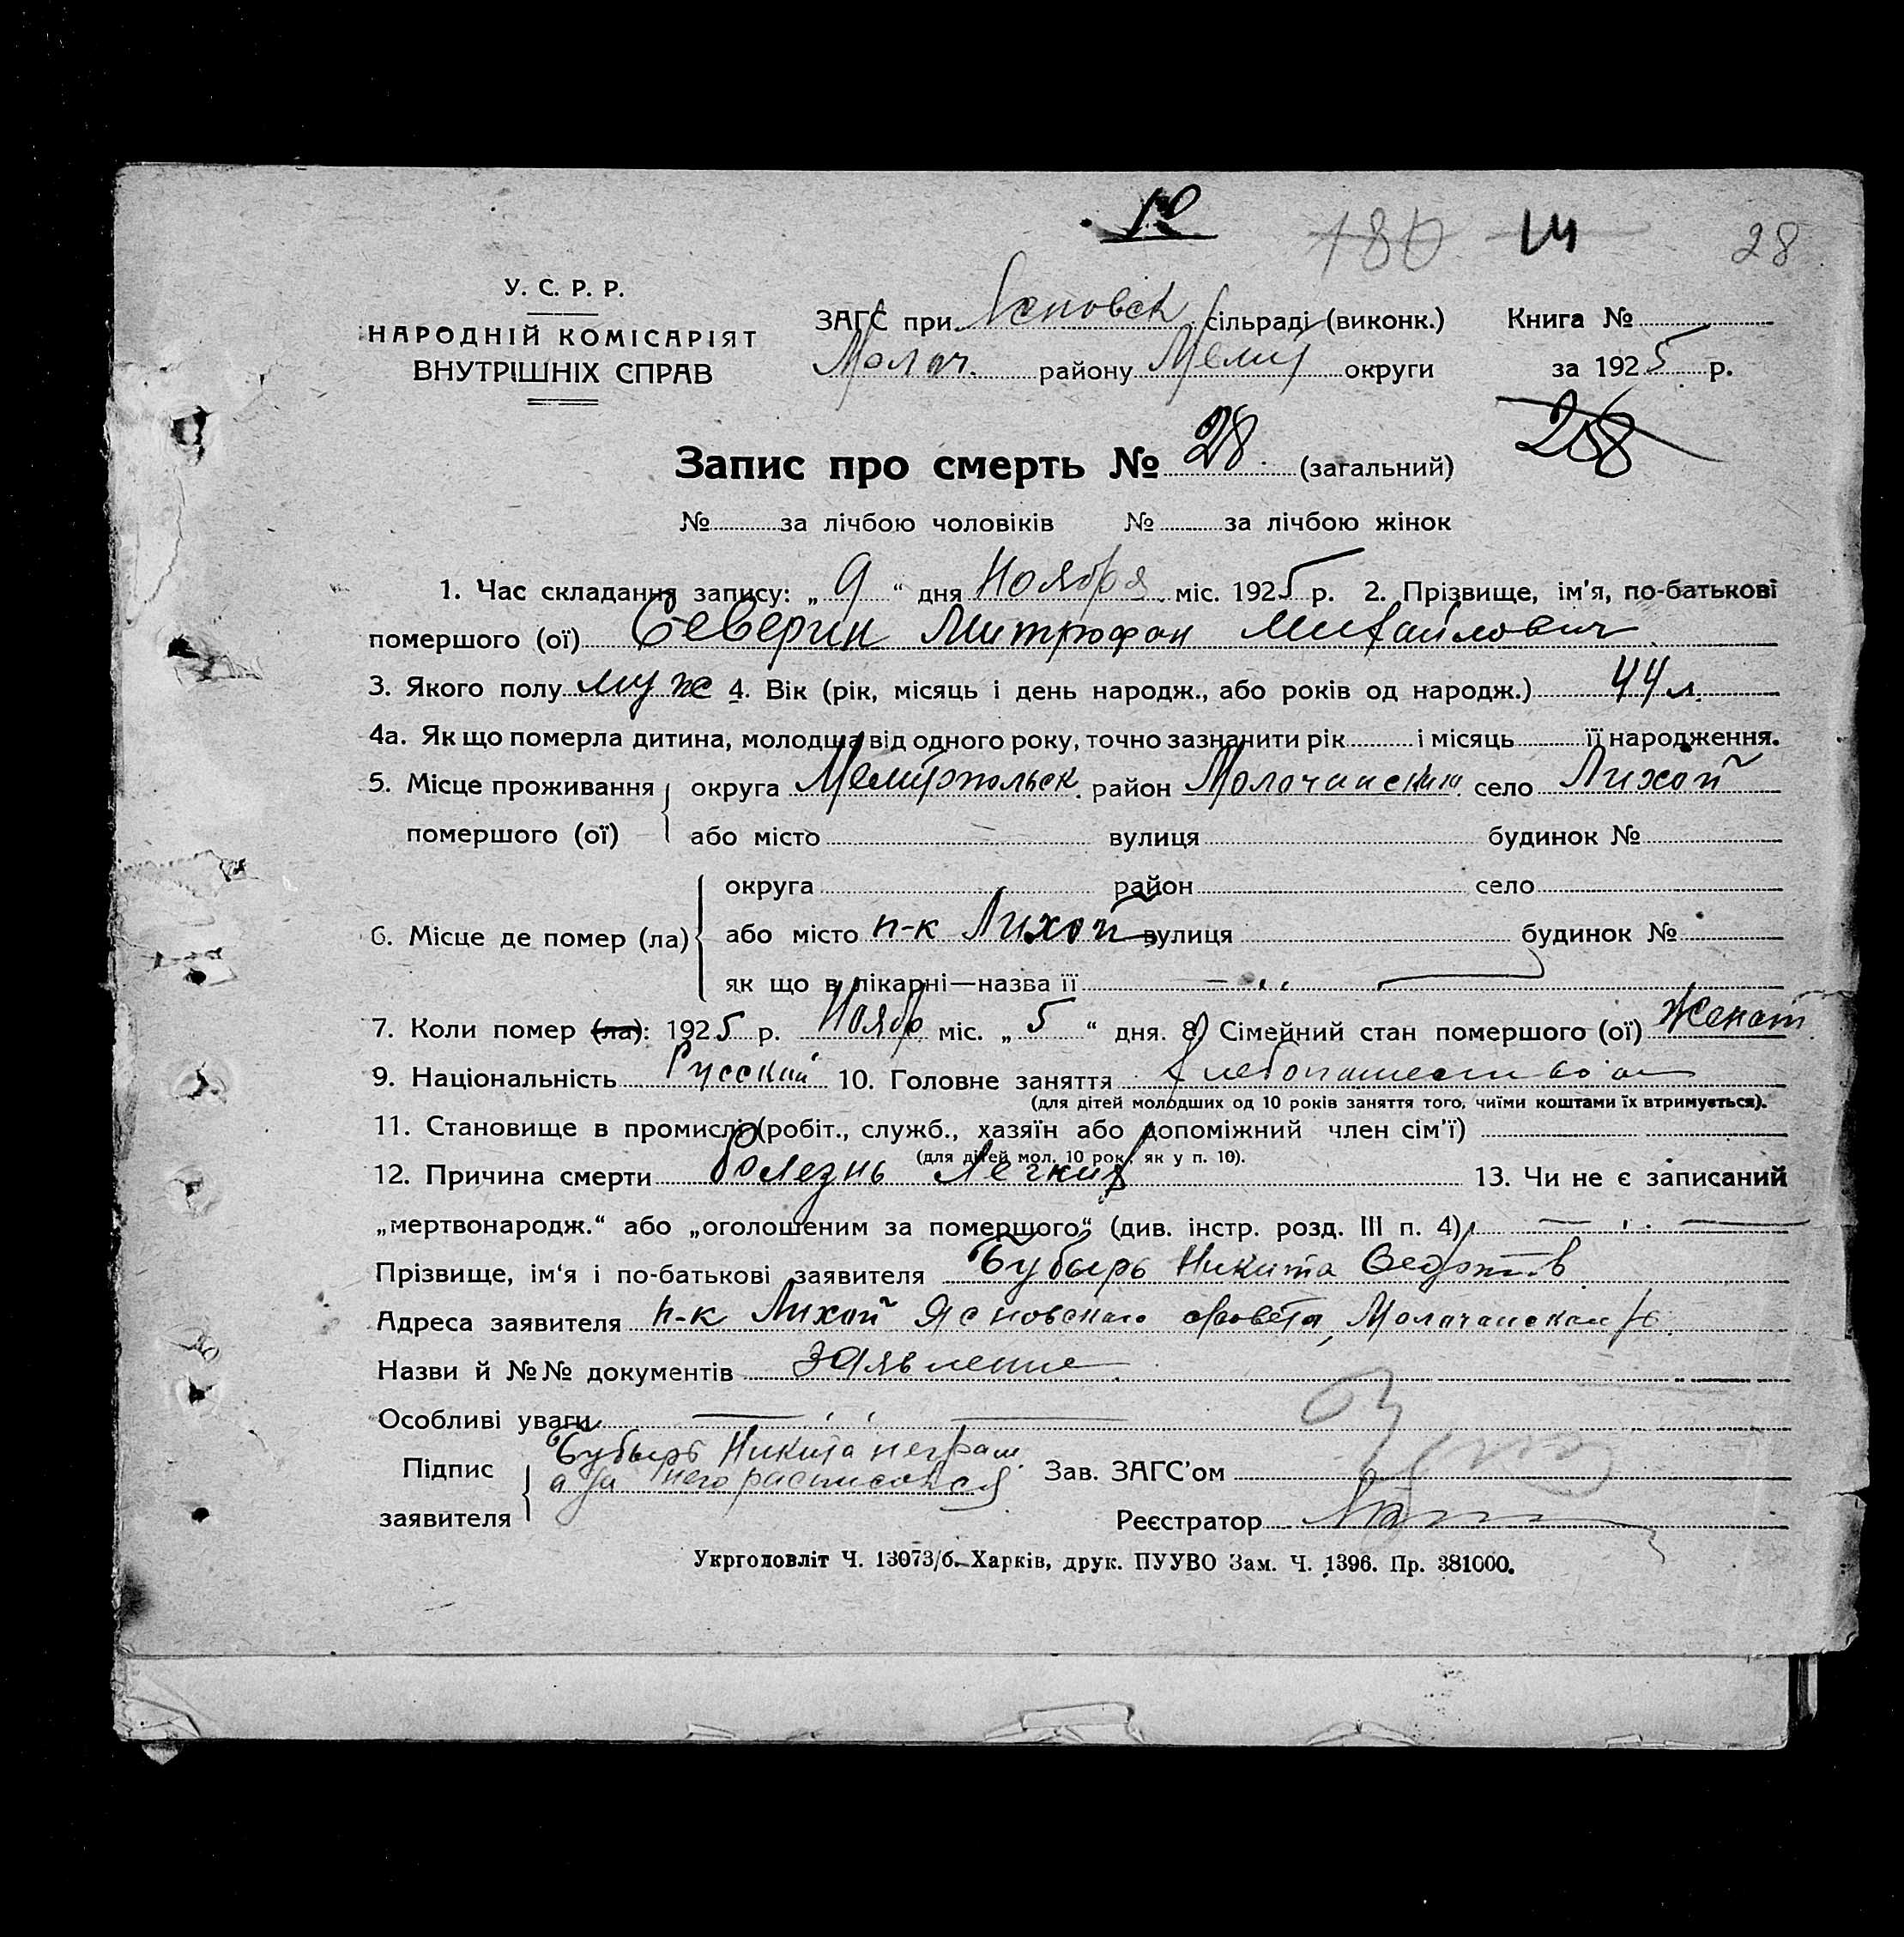 10
180 14 28
У. С. Р. Р.
НАРОДНІЙ КОМІСАРІЯТ
ВНУТРІШНІХ СПРАВ
ЗАГС при Ясновск сільраді (виконк.) Книга №
Молоч. району Мелит округи за 1925 р.
268
Запис про смерть № 28. (загальний)
№ за лічбою чоловіків № за лічбою жінок
1. Час складання запису: „ 9 “ дня Ноября міс. 1925 р. 2. Прізвище, ім'я, по-батькові
помершого (ої) Северин Митрофан Михайлович
3. Якого полу муж 4. Вік (рік, місяць і день народж., або років од народж.) 44 л.
4а. Як що померла дитина, молодша від одного року, точно зазначити рік і місяць її народження.
5. Місце проживання округа Мелитопольск. район Молочанский село Лихой
помершого (ої) або місто вулиця будинок №
округа район село
6. Місце де помер (ла) або місто п-к Лихой вулиця будинок №
як що в лікарні—назва її
7. Коли помер (ла): 1925 р. Ноябр міс. „ 5 “ дня. 8) Сімейний стан помершого (ої) Женат
9. Національність Русский 10. Головне заняття
(для дітей молодших од 10 років заняття того, чиїми коштами їх втримується).
11. Становище в промислі (робіт., служб., хазяїн або допоміжний член сім'ї)
(для дітей мол. 10 рок., як у п. 10).
12. Причина смерти Болезнь Легких 13. Чи не є записаний
„мертвонародж.“ або „оголошеним за помершого“ (див. інстр. розд. III п. 4)
Прізвище, ім'я і по-батькові заявителя Бубырь Никита Федотов
Адреса заявителя п-к Лихой Ясновского с/совета, Молочанском
Назви й №№ документів заявление
Особливі уваги
Підпис Бубырь Никита неграм. Зав. ЗАГС'ом
а за него расписался
заявителя Реєстратор
Укрголовліт Ч. 13073/б.—Харків, друк. ПУУВО Зам. Ч. 1396. Пр. 381000.